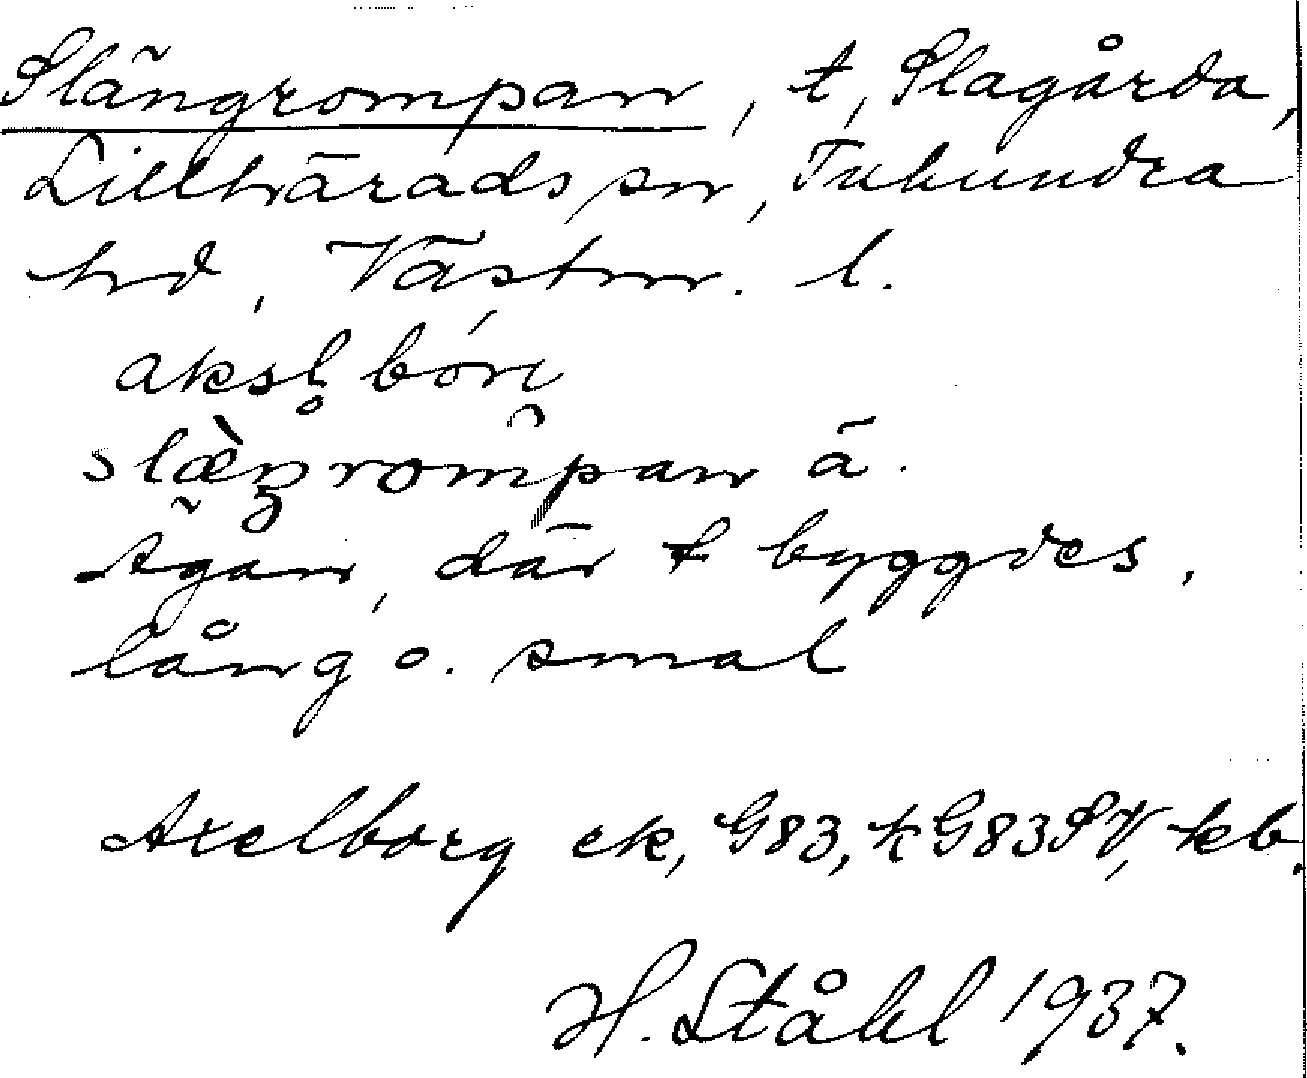 Slängrompan, t, Slagårda,
Lillhärads sn, Tuhundra
hd, Västm. l.
aksl̥bórj
slæ̀ŋrom̂pan ä.
Ägan, där t byggdes,
lång o. smal
Axelborg ek, G83, k G83SV, kb.
H. Ståhl 1937.